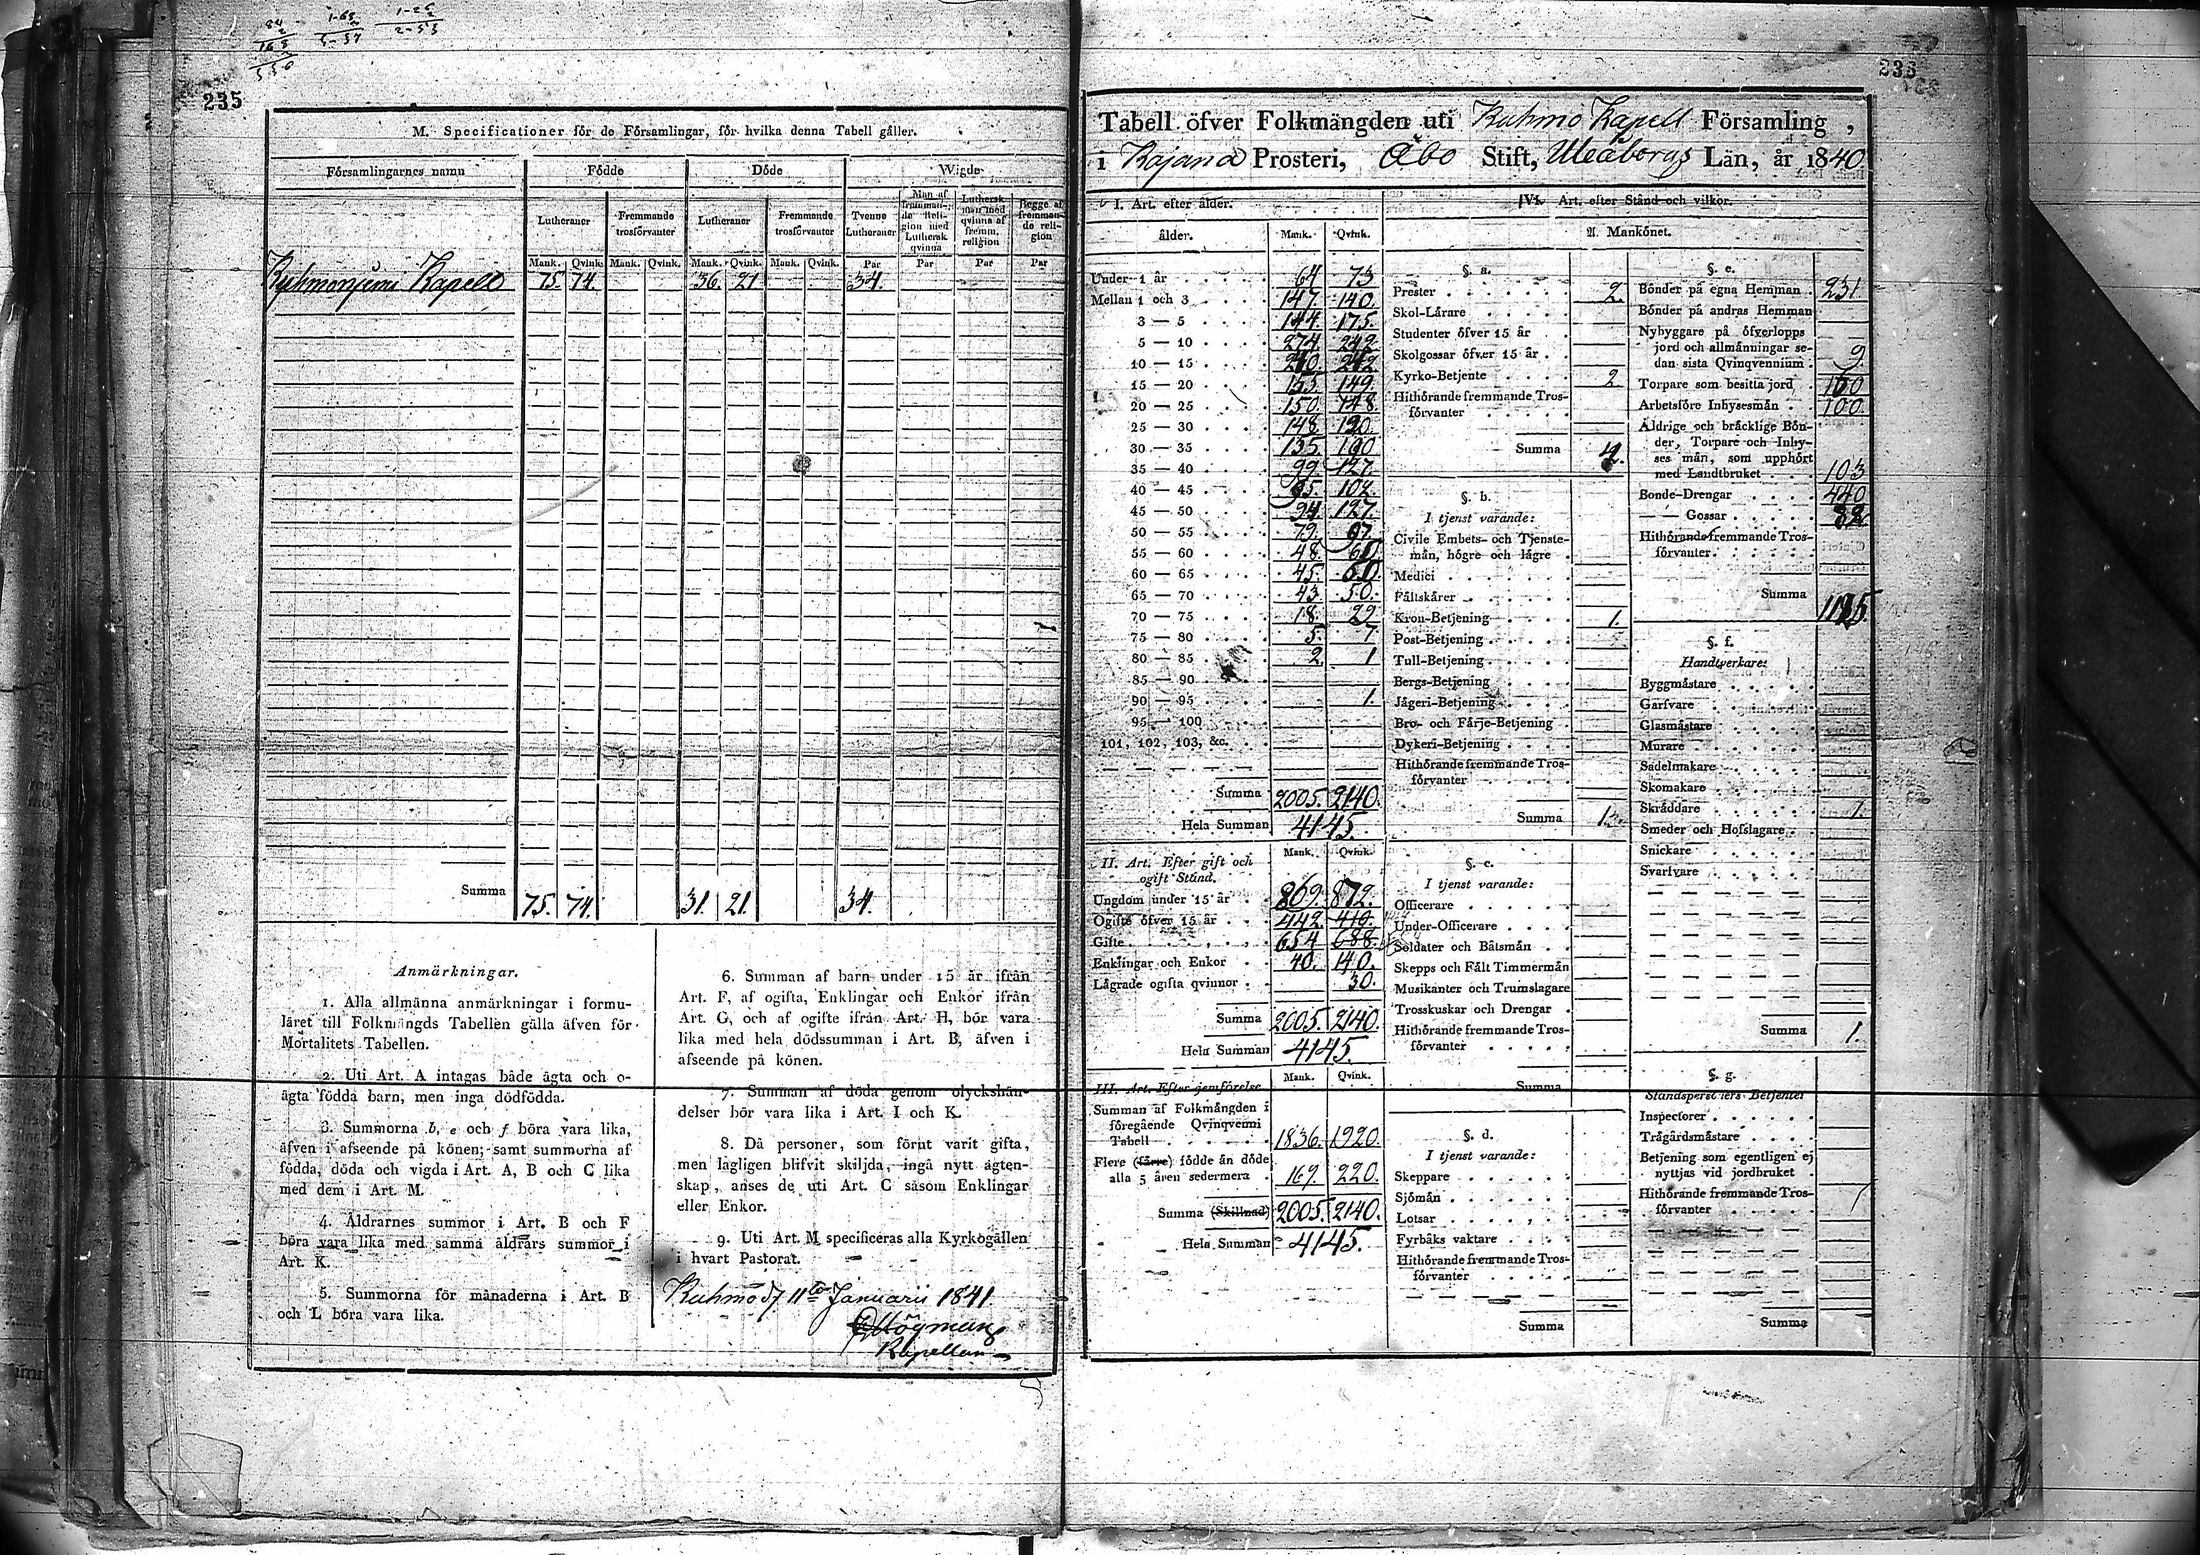 84
2
168
1-68
1-26
2
235
M. Specificationer för de Församlingar, för hvilka denna Tabell gäller.
Församlingarnes namn Födde Döde Wigde
Lutheraner Fremmande trosförvanter Lutheraner Fremmande trosförvanter Tvenne Lutheraner Man af fremmande Religion med Luthersk qvinna Luthersk man med qvinna af fremm. religion Begge af fremmande religion
Mank. Qvink. Mank. Qvink. Mank. Qvink. Mank. Qvink. Par Par Par Par
Kuhmoniemi Kapell 75. 74. 36. 21 34.
Summa 75. 74. 31. 21. 34.
Anmärkningar.
1. Alla allmänna anmärkningar i formu-
läret till Folkmängds Tabellen gälla äfven för
Mortalitets Tabellen.
2. Uti Art. A intagas både ägta och o-
ägta födda barn, men inga dödfödda.
3. Summorna b, e och f böra vara lika,
äfven i afseende på könen; samt summorna af
födda, döda och vigda i Art. A, B och C lika
med dem i Art. M.
4. Åldrarnes summor i Art. B och F
böra vara lika med samma åldrars summor i
Art. K.
5. Summorna för månaderna i Art. B
och L böra vara lika.
6. Summan af barn under 15 år ifrån
Art. F, af ogifta, Enklingar och Enkor ifrån
Art. G, och af ogifte ifrån Art. H, bör vara
lika med hela dödssumman i Art. B, äfven i
afseende på könen.
7. Summan af döda genom olyckshän-
delser bör vara lika i Art. I och K.
8. Då personer, som förut varit gifta,
men lagligen blifvit skiljda, ingå nytt ägten-
skap, anses de uti Art. C såsom Enklingar
eller Enkor.
9. Uti Art. M specificeras alla Kyrkogällen
i hvart Pastorat.
Kuhmo d. 11te Januarii 1841
Högman
Kapellan
236
Tabell öfver Folkmängden uti Kuhmo Kapell Församling,
i Kajana Prosteri, Åbo Stift, Uleåborgs Län, år 1840
I. Art. efter ålder.
ålder. Mank. Qvink.
Under 1 år 64 73
Mellan 1 och 3 147. 140.
3 — 5 144. 175.
5 — 10 274. 242
10 — 15 240. 242
15 — 20 155. 149.
20 — 25 150. 148.
25 — 30 148. 120.
30 — 35 135. 190
35 — 40 99. 127.
40 — 45 85. 102.
45 — 50 94 127.
50 — 55 79. 97.
55 — 60 48. 60
60 — 65 45. 60.
65 — 70 43. 50.
70 — 75 18. 22
75 — 80 5. 7
80 — 85 2. 1
85 — 90
90 — 95 1.
95 — 100
101, 102, 103, &c.
Summa 2005. 2140.
Hela Summan 4145.
II. Art. Efter gift och
ogift Stånd. Mank. Qvink.
Ungdom under 15 år 869. 872.
Ogifte öfver 15 år 442. 410.
Gifte 654 688.
Enklingar och Enkor 40. 140.
Lägrade ogifta qvinnor 30.
Summa 2005. 2140.
Hela Summan 4145.
III. Art. Efter jemförelse Mank. Qvink.
Summan af Folkmängden i
föregående Qvinqvenni
Tabell 1836. 1920.
Flere (färre) födde än döde
alla 5 åren sedermera 169. 220.
Summa (Skillnad) 2005. 2140.
Hela Summan 4145.
IV. Art. efter Stånd och vilkor.
A. Mankönet.
§. a.
Prester 2.
Skol-Lärare
Studenter öfver 15 år
Skolgossar öfver 15 år
Kyrko-Betjente 2
Hithörande fremmande Tros-
förvanter
Summa 4.
§. b.
I tjenst varande:
Civile Embets- och Tjenste-
män, högre och lägre
Medici
Fältskärer
Kron-Betjening 1.
Post-Betjening
Tull-Betjening
Bergs-Betjening
Jägeri-Betjening
Bro- och Färje-Betjening
Dykeri-Betjening
Hithörande fremmande Tros-
förvanter
Summa 1.
§. c.
I tjenst varande:
Officerare
Under-Officerare
Soldater och Båtsmän
Skepps och Fält Timmermän
Musikanter och Trumslagare
Trosskuskar och Drengar
Hithörande fremmande Tros-
förvanter
Summa
§. d.
I tjenst varande:
Skeppare
Sjömän
Lotsar
Fyrbåks vaktare
Hithörande fremmande Tros-
förvanter
Summa
§. e.
Bönder på egna Hemman 231
Bönder på andras Hemman
Nybyggare på öfverlopps
jord och allmänningar se-
dan sista Qvinqvennium 9
Torpare som besitta jord 160
Arbetsföre Inhysesmän 100.
Åldrige och bräcklige Bön-
der, Torpare och Inhy-
ses män, som upphört
med Landtbruket 103
Bonde-Drengar 440
— — Gossar 82
Hithörande fremmande Tros-
förvanter
Summa 1125.
§. f.
Handtverkare:
Byggmästare
Garfvare
Glasmästare
Murare
Sadelmakare
Skomakare
Skräddare 1.
Smeder och Hofslagare
Snickare
Svarfvare
Summa 1.
§. g.
Ståndspersoners Betjenter
Inspectorer
Trägårdsmästare
Betjening som egentligen ej
nyttjas vid jordbruket
Hithörande fremmande Tros-
förvanter
Summa